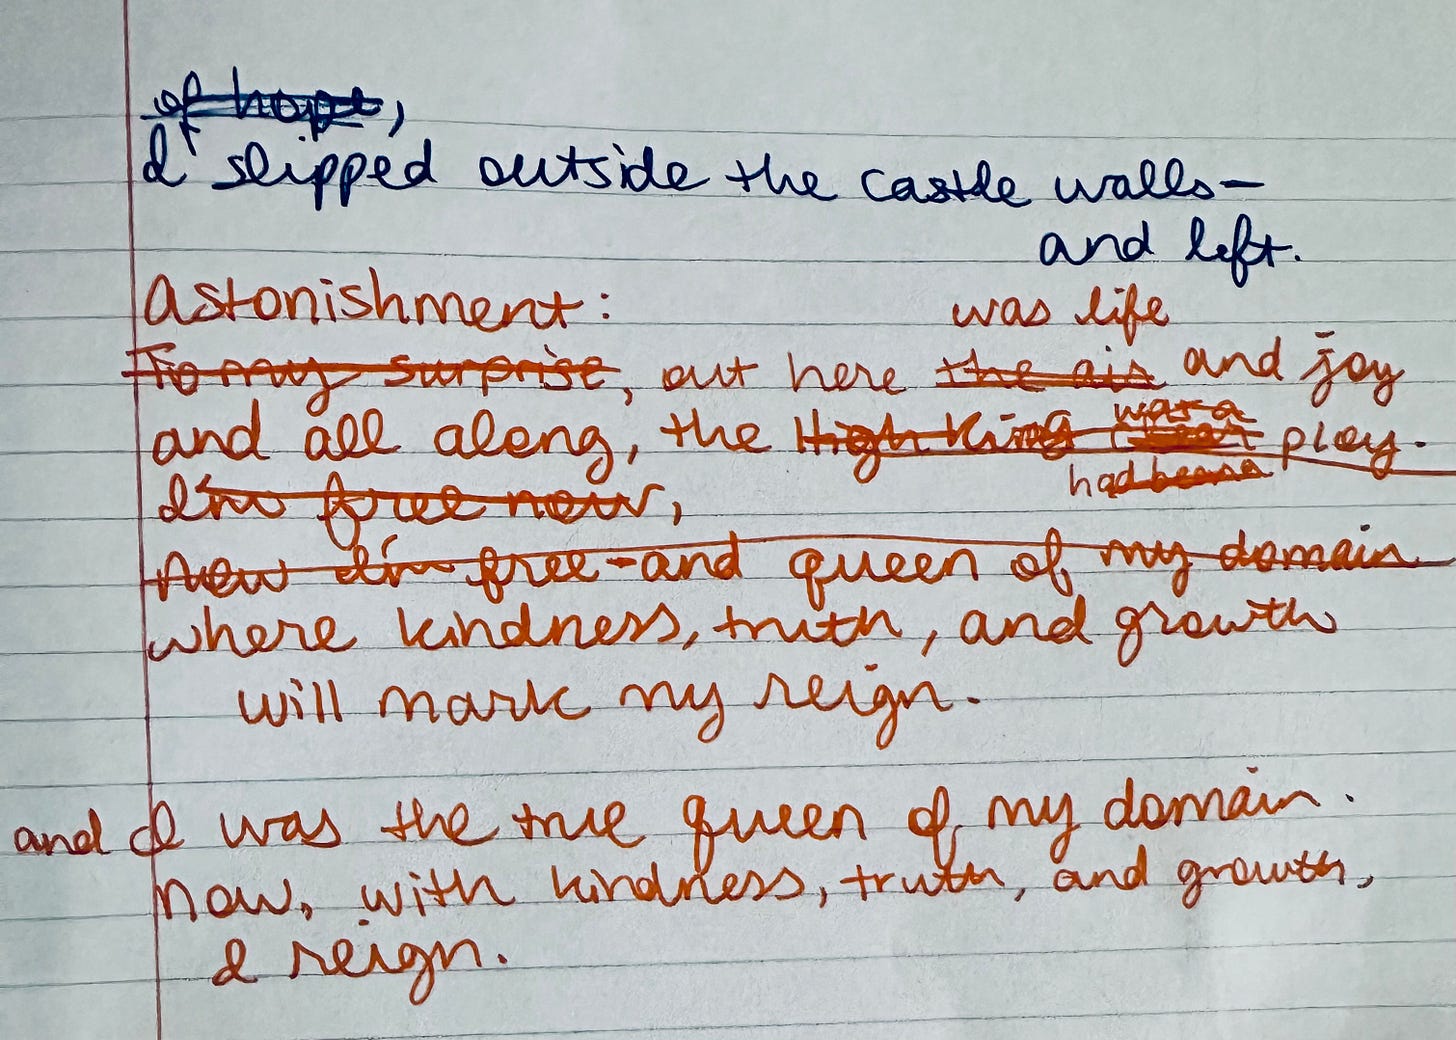 of hope,
I slipped outside the castle walls—
and left.
astonishment:
was life
To my surprise, out here the air and joy
was a
and all along, the High King play.
had been a
I'm free now,
Now I'm free—and queen of my domain
where kindness, truth, and growth
will mark my reign.
and I was the true queen of my domain.
now, with kindness, truth, and growth,
I reign.